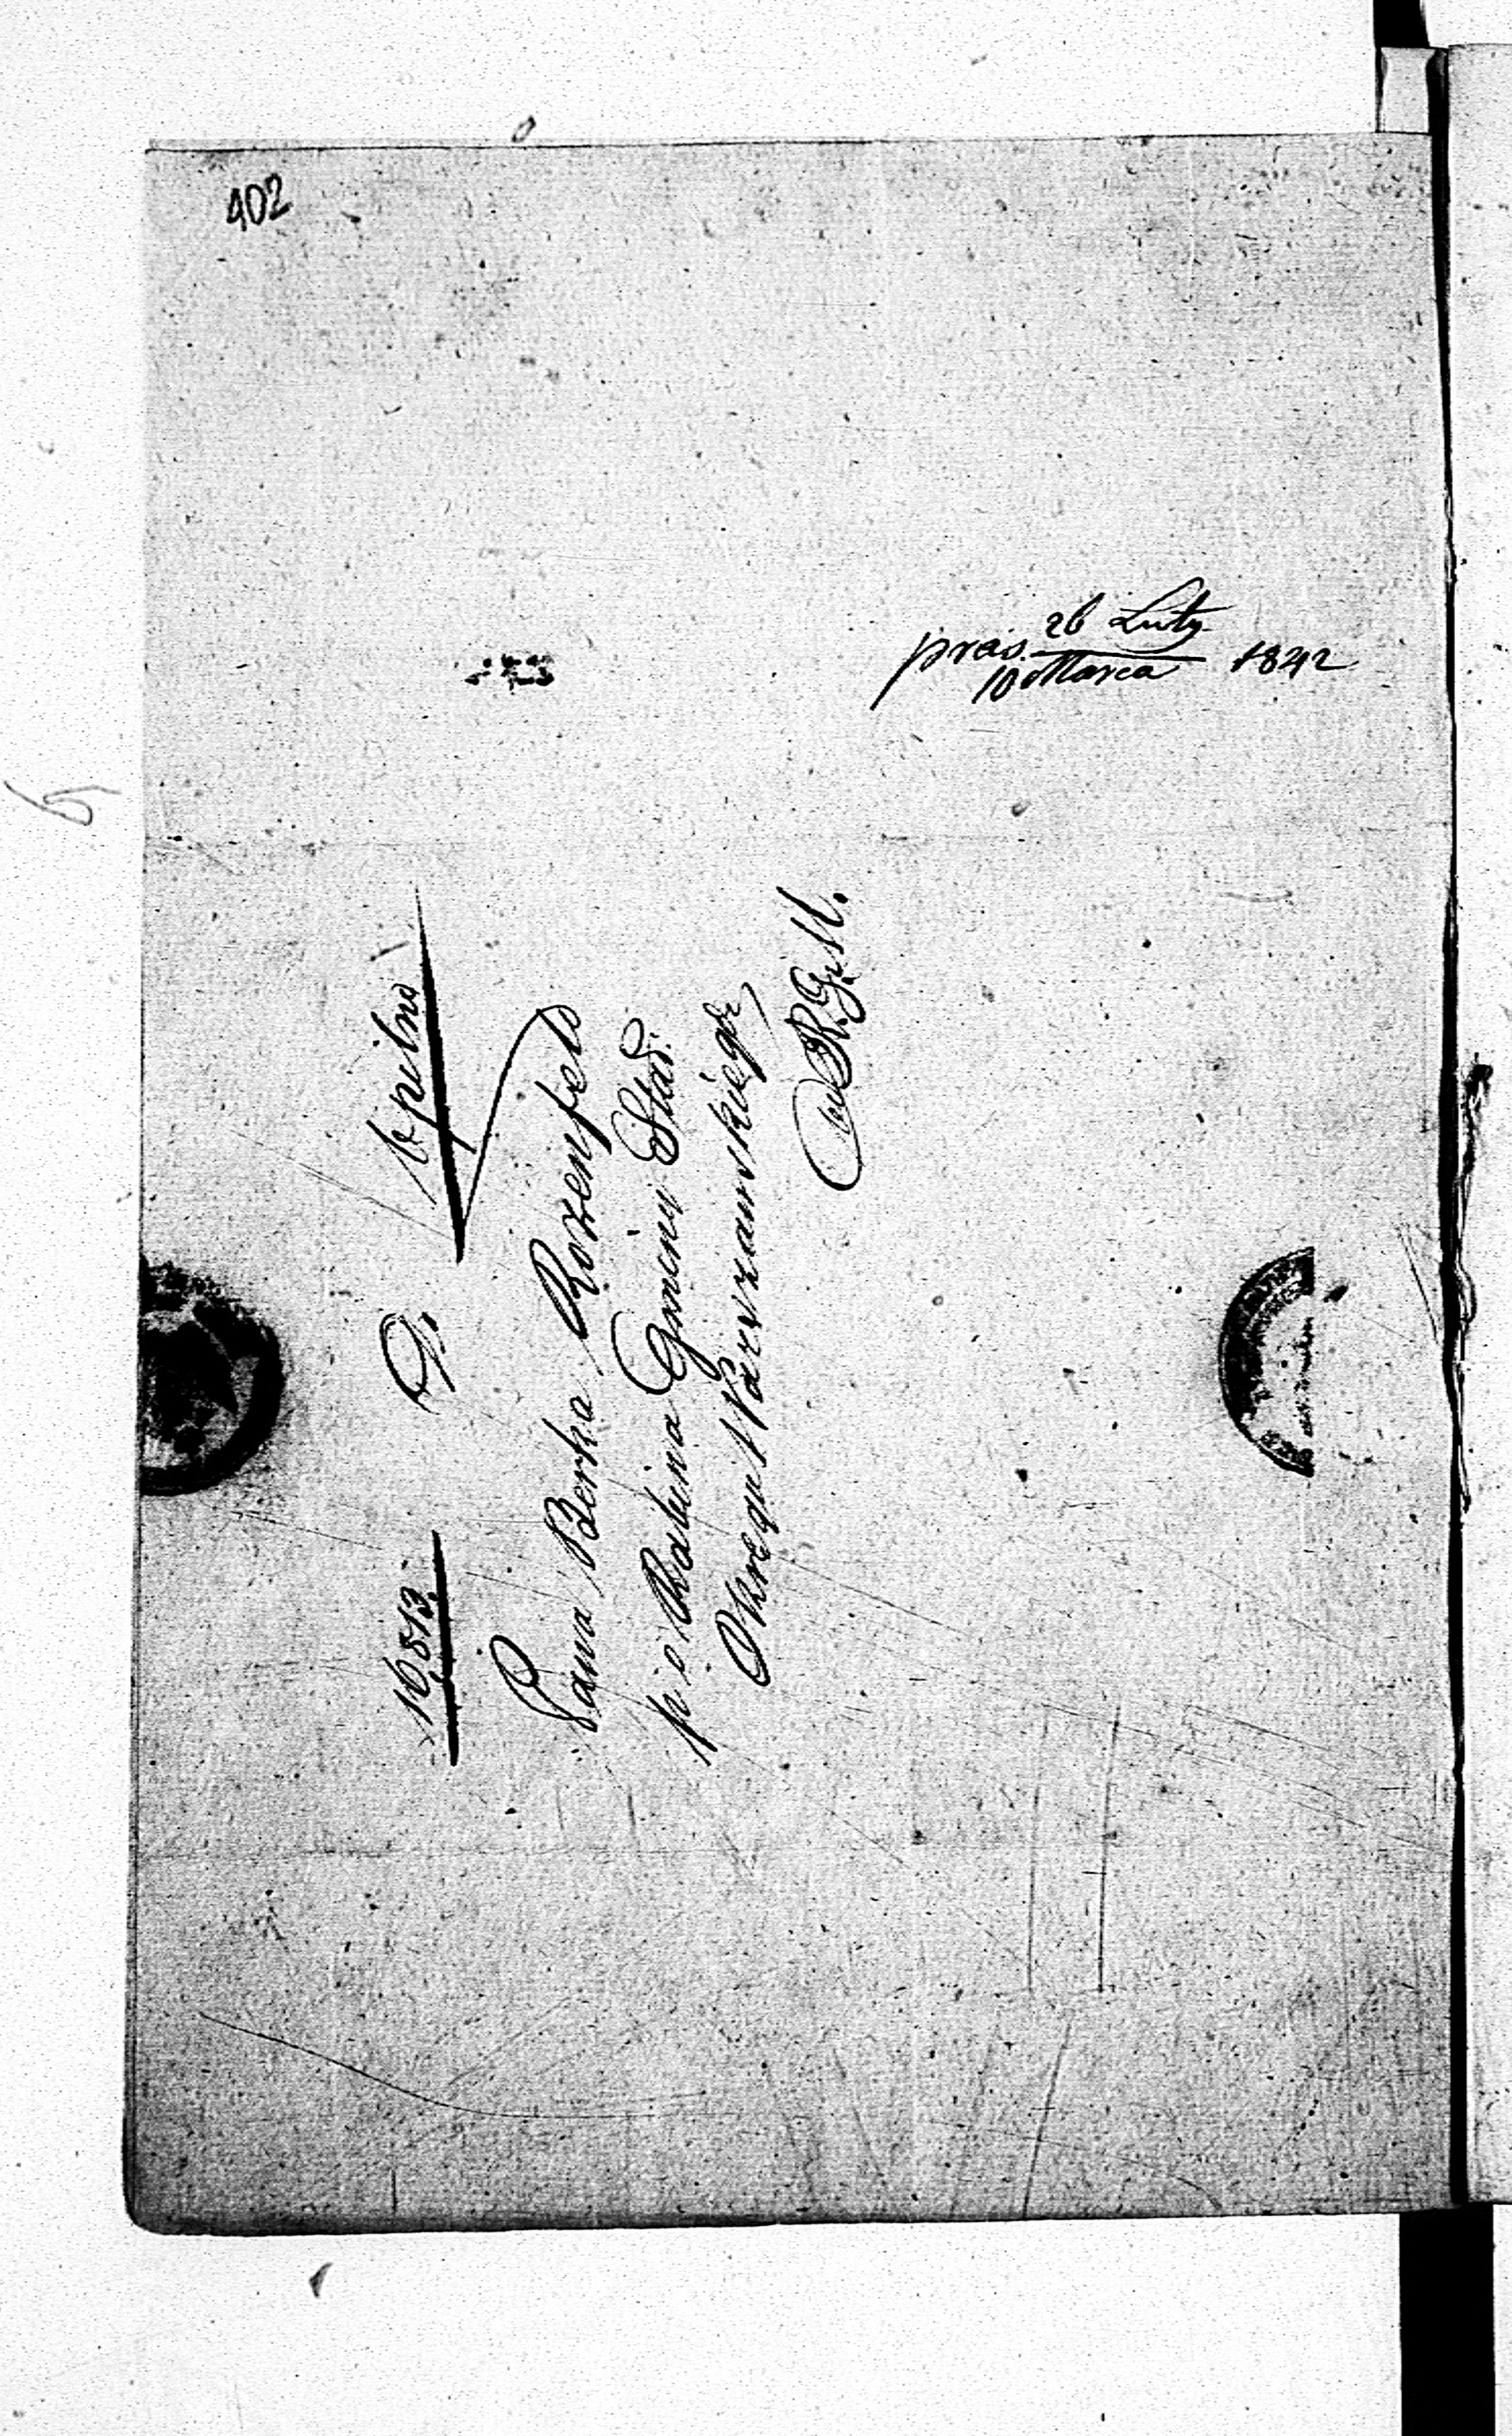 402
praes. 26 Luty / 10 Marca 1842
16813. D. bpilno
Pana Berka Rozenfeld
p. o. Rabina Gminy Star:
Okręgu Warszawskiego
w R. G. M.